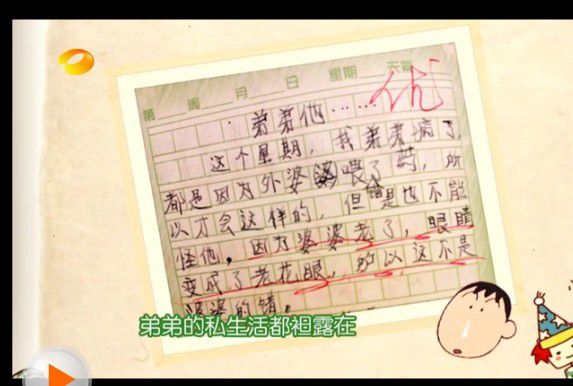 第 周 月 日 星期 天气
弟弟他…… 优
这个星期，我弟弟病了，
都是因为外婆喂错了药，所
以才会这样的，但是也不能
怪他。因为婆婆老了，眼睛
变成了老花眼，所以这不是
婆婆的错。
弟弟的私生活都袒露在